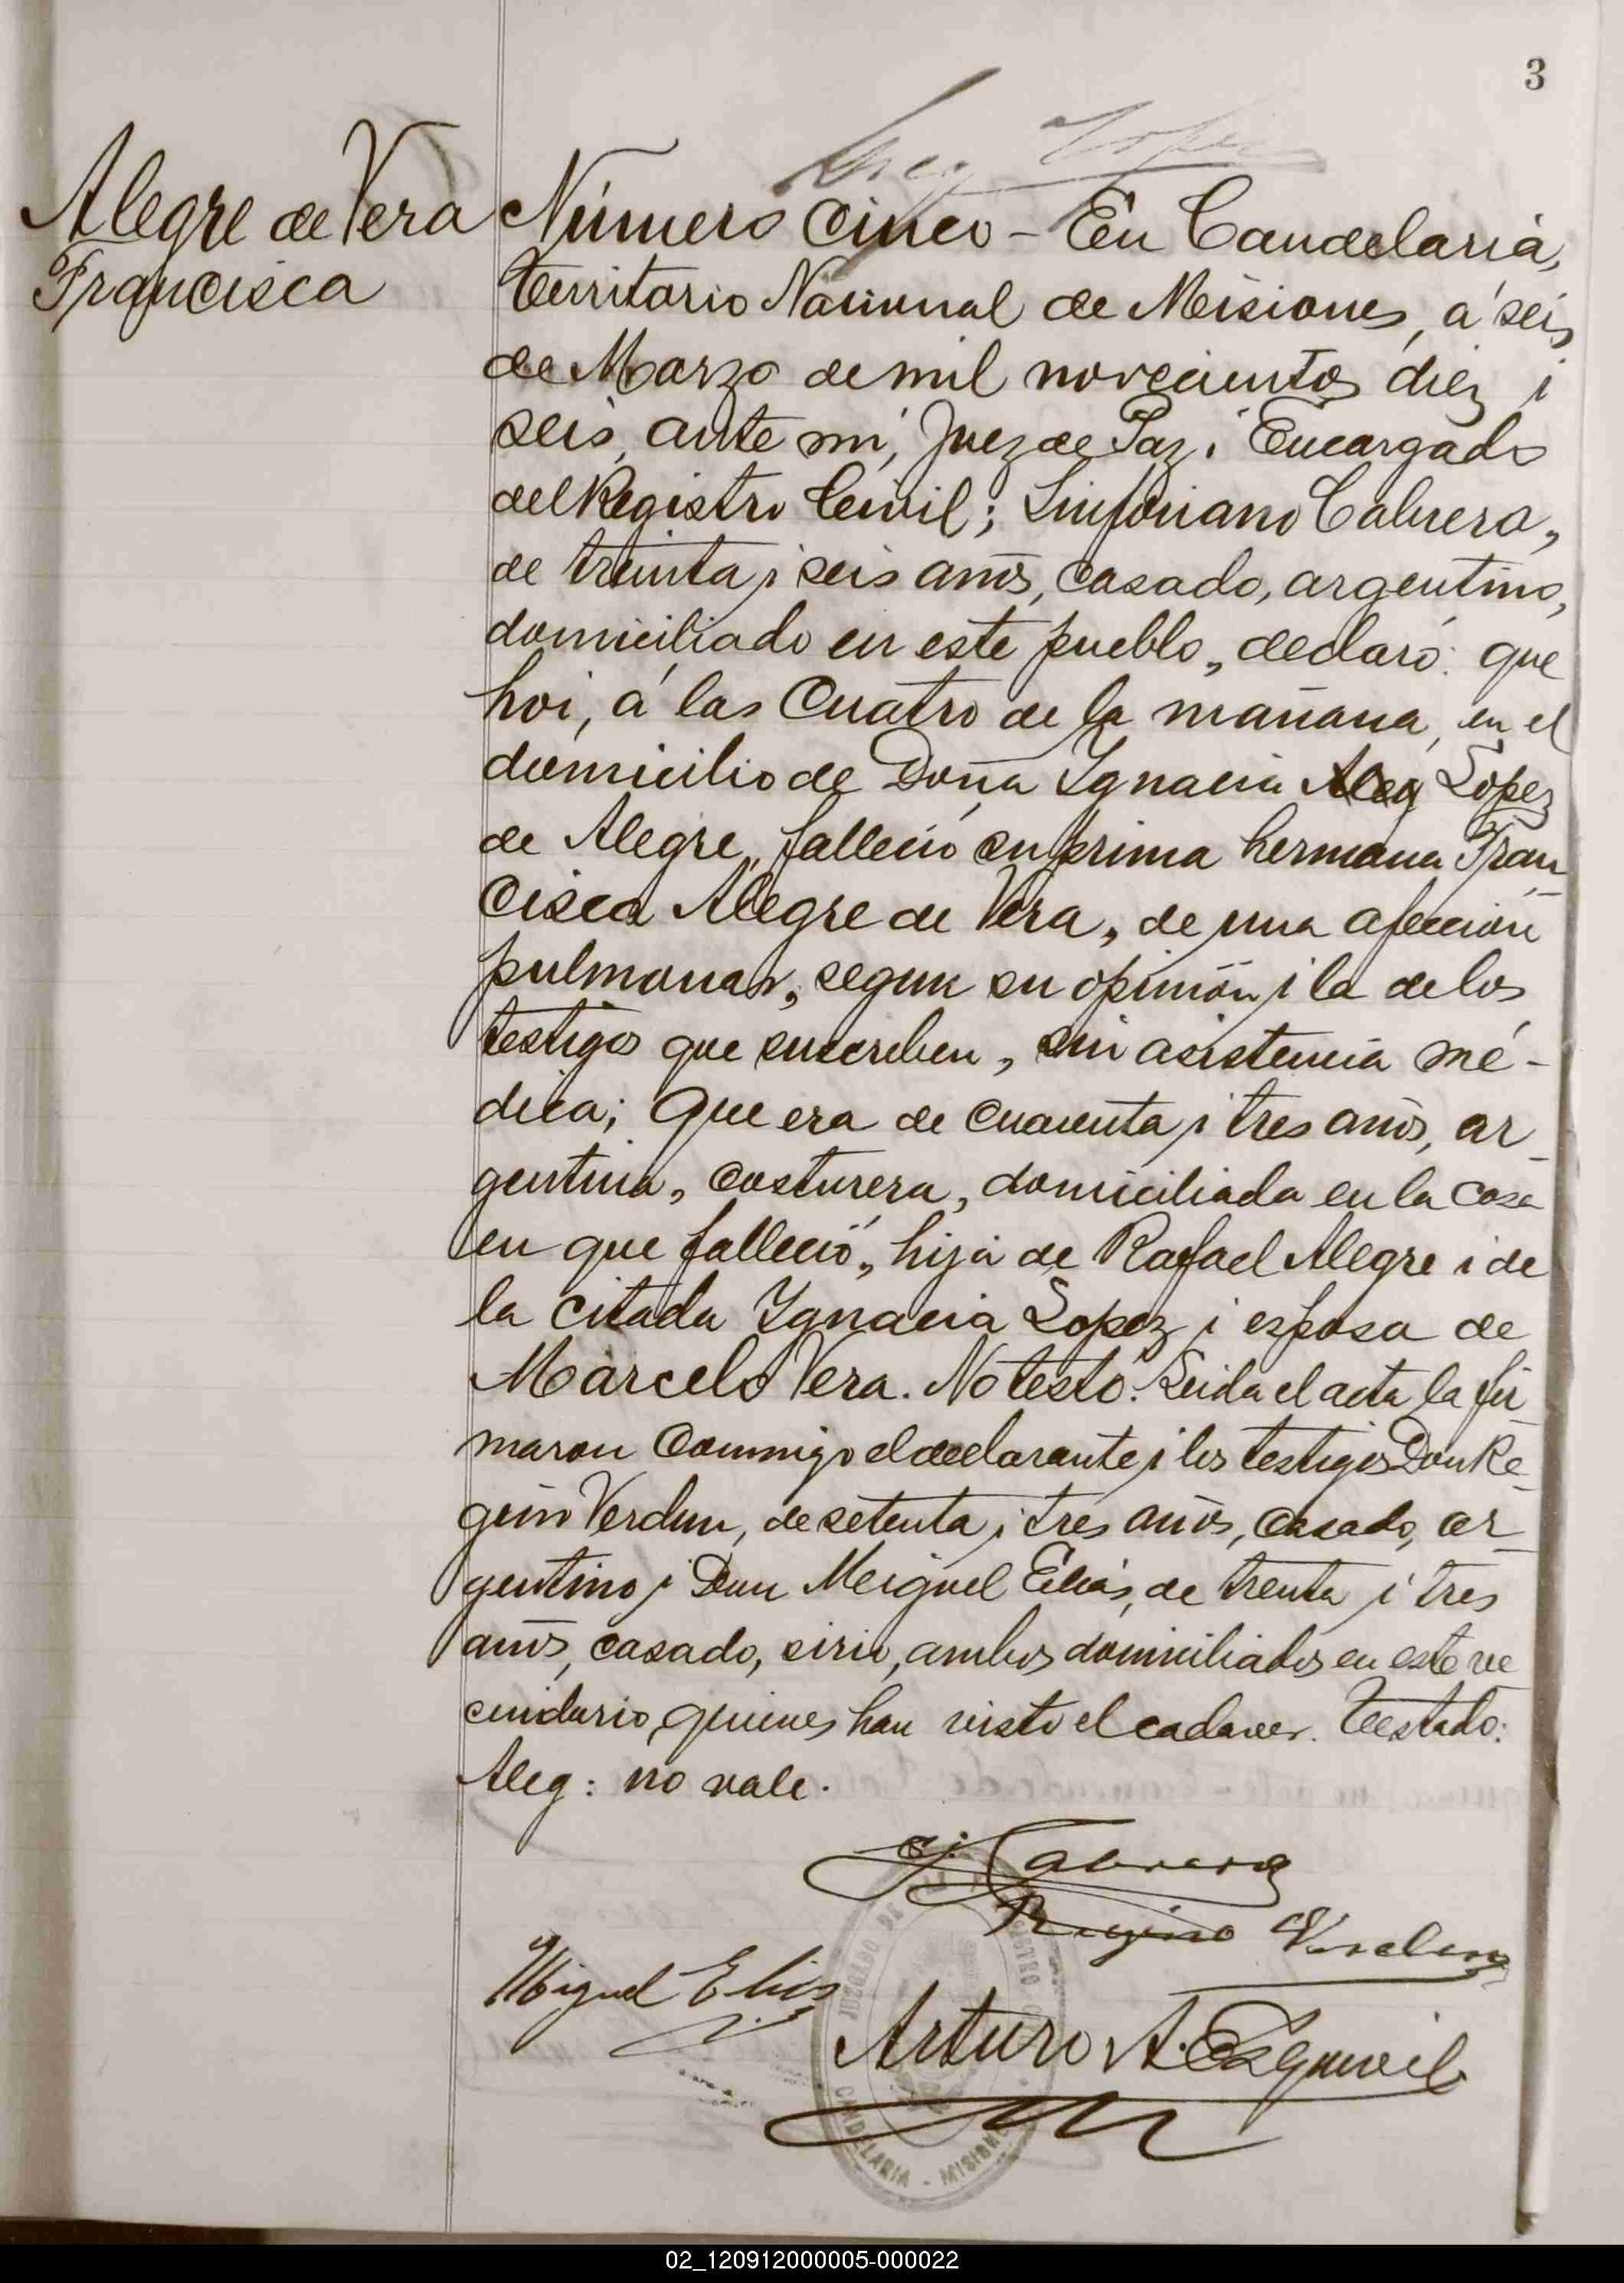 3
Alegre de Vera
Francisca
Número cinco - En Candelaria,
Territorio Nacional de Misiones, á seis
de Marzo de mil novecientos diez i
seis, ante mi, Juez de Paz i Encargado
del Registro Civil; Sinforiano Cabrera,
de treinta i seis años, casado, argentino,
domiciliado en este pueblo, declaró: que
hoi, á las cuatro de la mañana, en el
domicilio de Doña Ignacia Aleg Lopez
de Alegre, falleció su prima hermana Fran
cisca Alegre de Vera, de una afección
pulmonar, segun su opinión i la de los
testigos que suscriben, sin asistencia mé-
dica; que era de cuarenta i tres años, ar_
gentina, costurera, domiciliada en la casa
en que falleció, hija de Rafael Alegre i de
la citada Ignacia Lopez i esposa de
Marcelo Vera. No testó. Leida el acta la fir_
maron conmigo el declarante i los testigos Don Re_
gino Verdun, de setenta i tres años, casado, ar_
gentino i Don Miguel Elias, de trenta i tres
años, casado, sirio, ambos domiciliados en este ve_
cindario, quienes han visto el cadaver. Testado:
Aleg: no vale.
S. Cabrera
Regino Verdun
Miguel Elias
Arturo A. Esquivel
JUZGADO DE
CANDELARIA - MISIONES
02_120912000005-000022